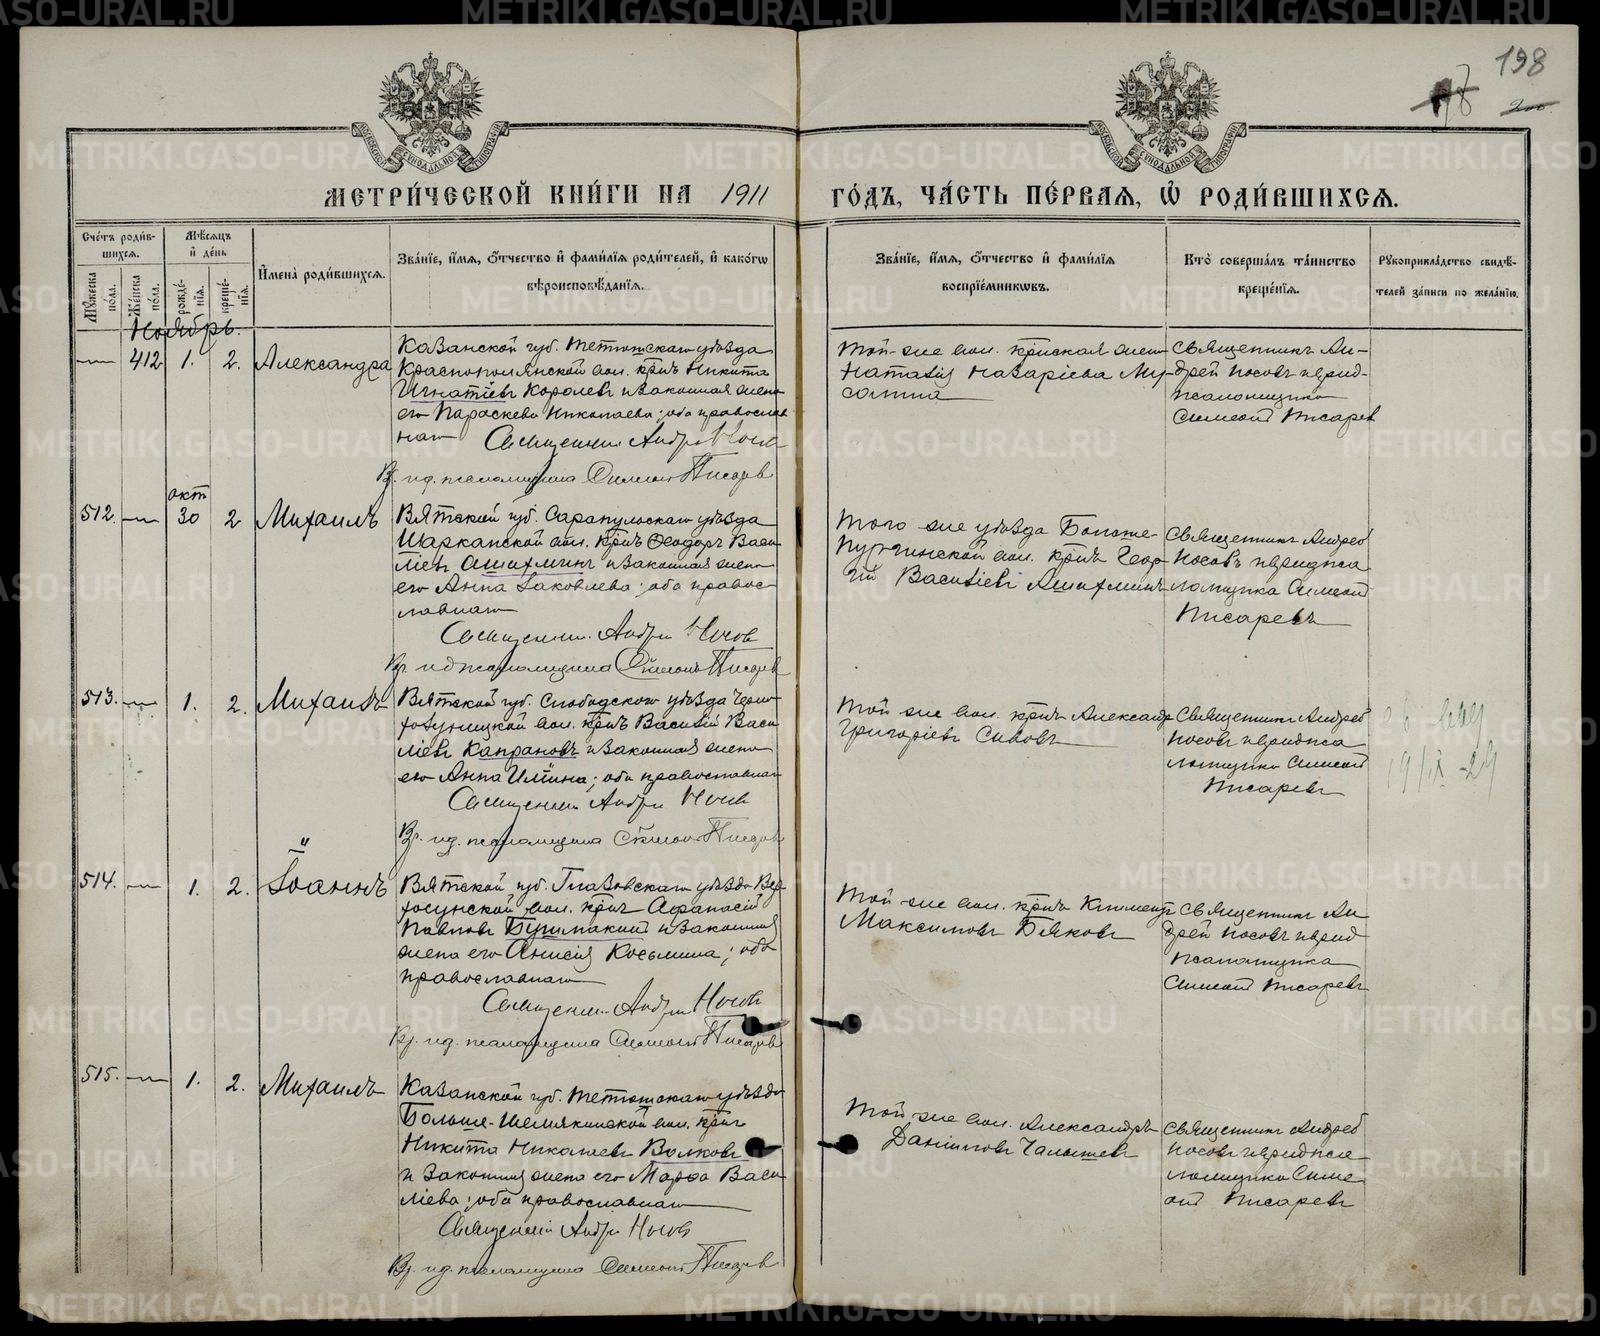 198
МЕТРИ́ЧЕСКОЙ КНИ́ГИ НА 1911 ГО́ДЪ, ЧА́СТЬ ПЕ́РВАЯ, Ѽ РОДИ́ВШИХСЯ.
Сче́тъ роди́в-
шихся.
Мꙋжеска по́ла.
Же́нска по́ла.
Мѣ́сяцъ
и҆ де́нь
рожде́-
нїя.
креще́-
нїя.
И҆мена̀ роди́вшихся.
Зва́нїе, и҆́мя, ѻ҆́тчество и҆ фами́лїя роди́телей, и҆ како́гѡ
вѣроисповѣ́данїя.
Зва́нїе, и҆́мя, ѻ҆́тчество и҆ фами́лїя
воспрїе́мникѡвъ.
Кто̀ соверша́лъ та́инство
креще́нїя.
Рꙋкоприкла́дство свидѣ́-
телей за́писи по жела́нїю.
Ноябрь.
412 1. 2. Александра
Казанской губ. Тетюшскаго уѣзда
Краснополянской вол. крнъ Никита
Игнатіевъ Королевъ и законная жена
его Параскева Николаева; оба православ
наго
Священникъ Андрей Носовъ
Вр. ид. псаломщика Симеонъ Писаревъ
Той-же вол. крнская жена
Наталія Назаріева Му-
Священникъ Ан-
дрей Носовъ и врид-
псаломщика
Симеонъ Писаревъ
512. окт 30 2 Михаилъ
Вятской губ. Сарапульскаго уѣзда
Шарканской вол. крнъ Ѳеодоръ Васи
ліевъ Ашихминъ и законная жена
его Анна Іаковлева; оба правос
лавнаго
Священникъ Андрей Носовъ
Вр. ид псаломщика Симеонъ Писаревъ
Того же уѣзда
вол. крнъ Геор
гій Василіевъ Ашихминъ
Священникъ Андрей
Носовъ и вридпса
ломщика Симеонъ
Писаревъ
513. 1. 2. Михаилъ
Вятской губ. Слободского уѣзда Черно
холуницкой вол. крнъ Василій Васи
ліевъ Капрановъ и законная жена
его Анна Иліина; оба православнаго
Священникъ Андрей Носовъ
Вр. ид. псаломщика Симеонъ Писаревъ
Той же вол. крнъ Александръ
Григоріевъ Сивовъ
Священникъ Андрей
Носовъ и вридпса
ломщика Симеонъ
Писаревъ
514. 1. 2. Іоаннъ
Вятской губ. Глазовскаго уѣзда Вер
хосунской вол. крнъ Аѳанасій
Павловъ Бушмакинъ и законная
жена его Анисія Косьмина; оба
православнаго
Священникъ Андрей Носовъ
Вр. ид. псаломщика Симеонъ Писаревъ
Той же вол. крнъ Климентъ
Максимовъ Бяковъ
Священникъ Ан
дрей Носовъ и врид
псаломщика
Симеонъ Писаревъ
515. 1. 2. Михаилъ
Казанской губ. Тетюшскаго уѣзда
Больше-Шемякинской вол. крнъ
Никита Николаевъ Волковъ
и законная жена его Марѳа Васи
ліева; оба православнаго
Священникъ Андрей Носовъ
Вр. ид. псаломщика Симеонъ Писаревъ
Той-же вол. Александръ
Даніиловъ Чалышевъ
Священникъ Андрей
Носовъ и вридпса
ломщика Симе
онъ Писаревъ